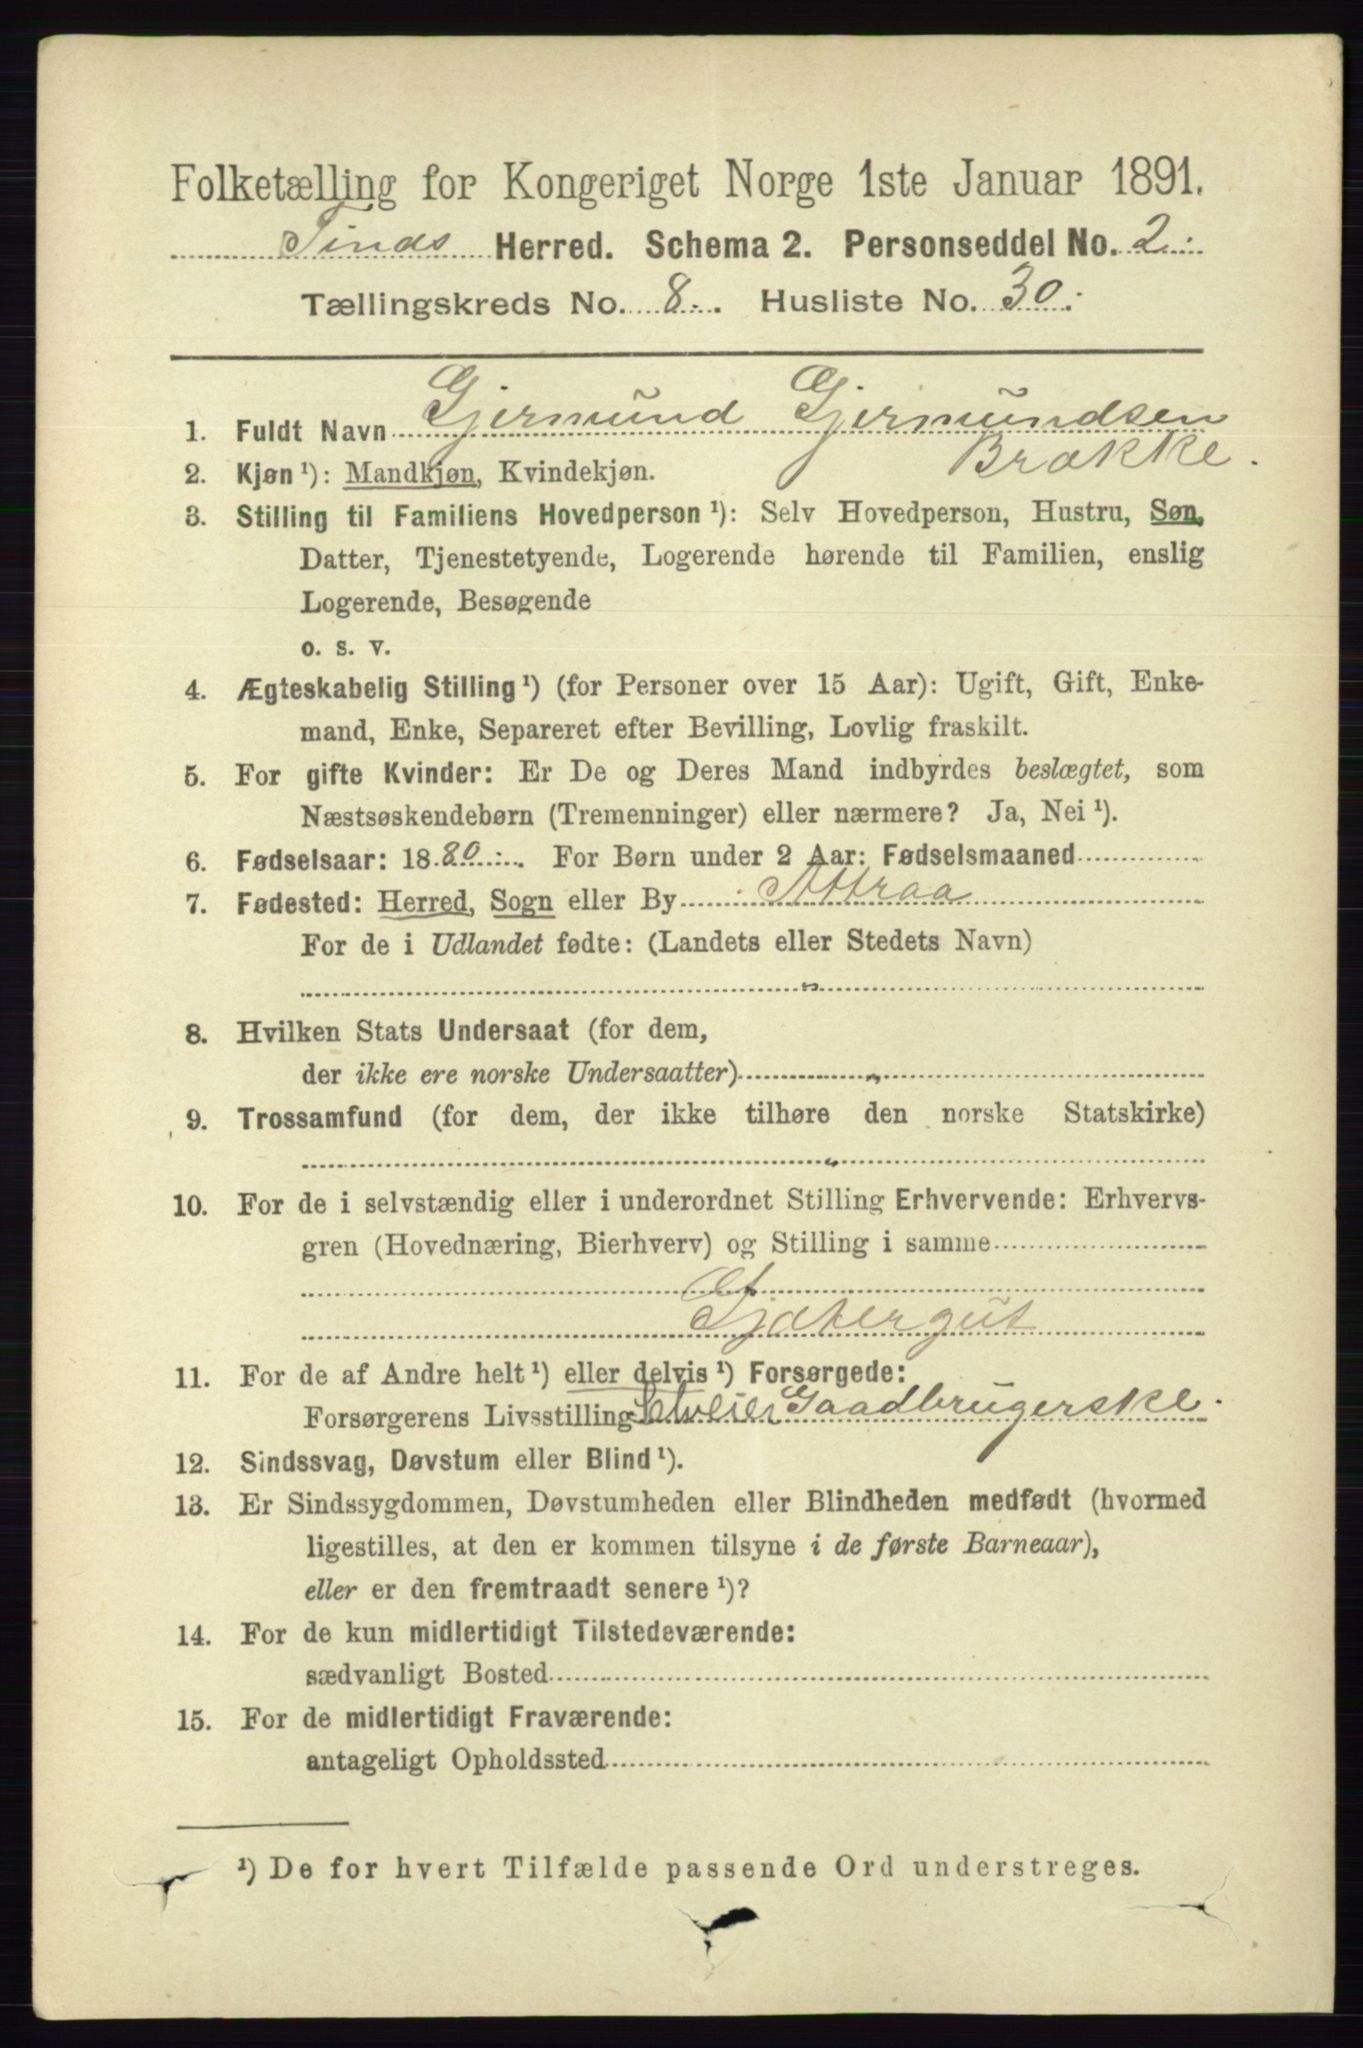 Folketælling for Kongeriget Norge 1ste Januar 1891.
Tinds Herred. Schema 2. Personseddel No. 2
Tællingskreds No. 8. Husliste No. 30
1. Fuldt Navn Gjermund Gjermundsen
Brække.
2. Kjøn ¹): Mandkjøn, Kvindekjøn.
3. Stilling til Familiens Hovedperson ¹): Selv Hovedperson, Hustru, Søn,
Datter, Tjenestetyende, Logerende hørende til Familien, enslig
Logerende, Besøgende
o. s. v.
4. Ægteskabelig Stilling ¹) (for Personer over 15 Aar): Ugift, Gift, Enke-
mand, Enke, Separeret efter Bevilling, Lovlig fraskilt.
5. For gifte Kvinder: Er De og Deres Mand indbyrdes beslægtet, som
Næstsøskendebørn (Tremenninger) eller nærmere? Ja, Nei ¹).
6. Fødselsaar: 1880. For Børn under 2 Aar: Fødselsmaaned
7. Fødested: Herred, Sogn eller By Attraa
For de i Udlandet fødte: (Landets eller Stedets Navn)
8. Hvilken Stats Undersaat (for dem,
der ikke ere norske Undersaatter)
9. Trossamfund (for dem, der ikke tilhøre den norske Statskirke)
10. For de i selvstændig eller i underordnet Stilling Erhvervende: Erhvervs-
gren (Hovednæring, Bierhverv) og Stilling i samme
Gjætergut
11. For de af Andre helt ¹) eller delvis ¹) Forsørgede:
Forsørgerens Livsstilling Selveier Gaadbrugerske.
12. Sindssvag, Døvstum eller Blind ¹).
13. Er Sindssygdommen, Døvstumheden eller Blindheden medfødt (hvormed
ligestilles, at den er kommen tilsyne i de første Barneaar),
eller er den fremtraadt senere ¹)?
14. For de kun midlertidigt Tilstedeværende:
sædvanligt Bosted
15. For de midlertidigt Fraværende:
antageligt Opholdssted
¹) De for hvert Tilfælde passende Ord understreges.